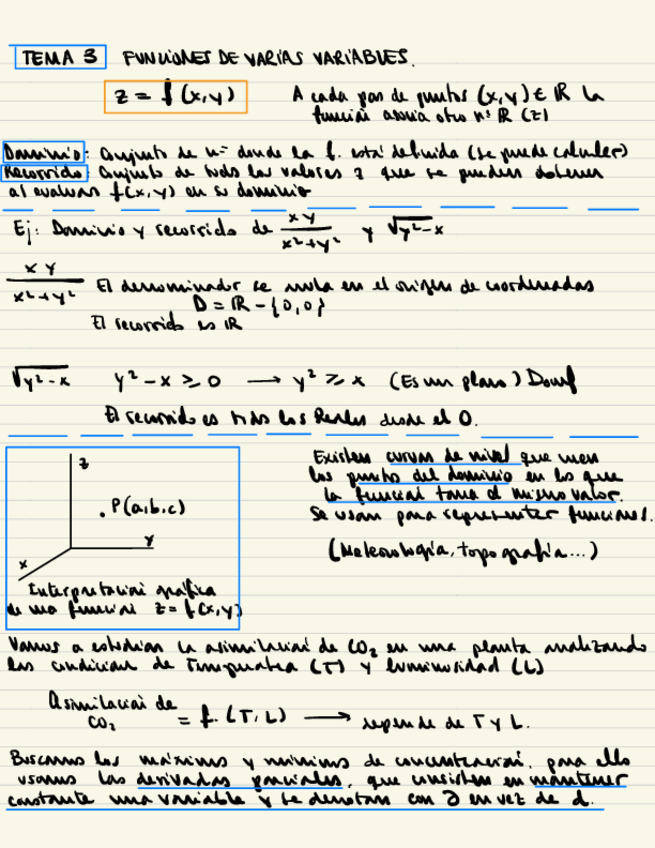 TEMA 3 FUNCIONES DE VARIAS VARIABLES.
z = f (x,y)
A cada par de puntos (x,y) ∈ ℝ la
función asocia otro nº ℝ (z)
Dominio: Conjunto de nº donde la f. está definida (se puede calcular)
Recorrido: Conjunto de todos los valores z que se pueden obtener
al evaluar f(x,y) en su dominio
Ej: Dominio y recorrido de xy/(x²+y²) y √(y²-x)
xy/(x²+y²) El denominador se anula en el origen de coordenadas
D = ℝ - {0,0}
El recorrido es ℝ
√(y²-x) y²-x ≥ 0 → y² ≥ x (Es un plano) Domf
El recorrido es todos los Reales desde el 0.
z
P(a,b,c)
y
x
Interpretación gráfica
de una función z = f(x,y)
Existen curvas de nivel que unen
los puntos del dominio en los que
la función toma el mismo valor.
Se usan para representar funciones.
(Meteorología, topografía...)
Vamos a estudiar la asimilación de CO₂ en una planta analizando
las condición de Temperatura (T) y luminosidad (L)
Asimilación de
CO₂ = f. (T, L) → depende de T y L.
Buscamos los máximos y mínimos de concentración, para ello
usamos las derivadas parciales, que consisten en mantener
constante una variable y se denotan con ∂ en vez de d.